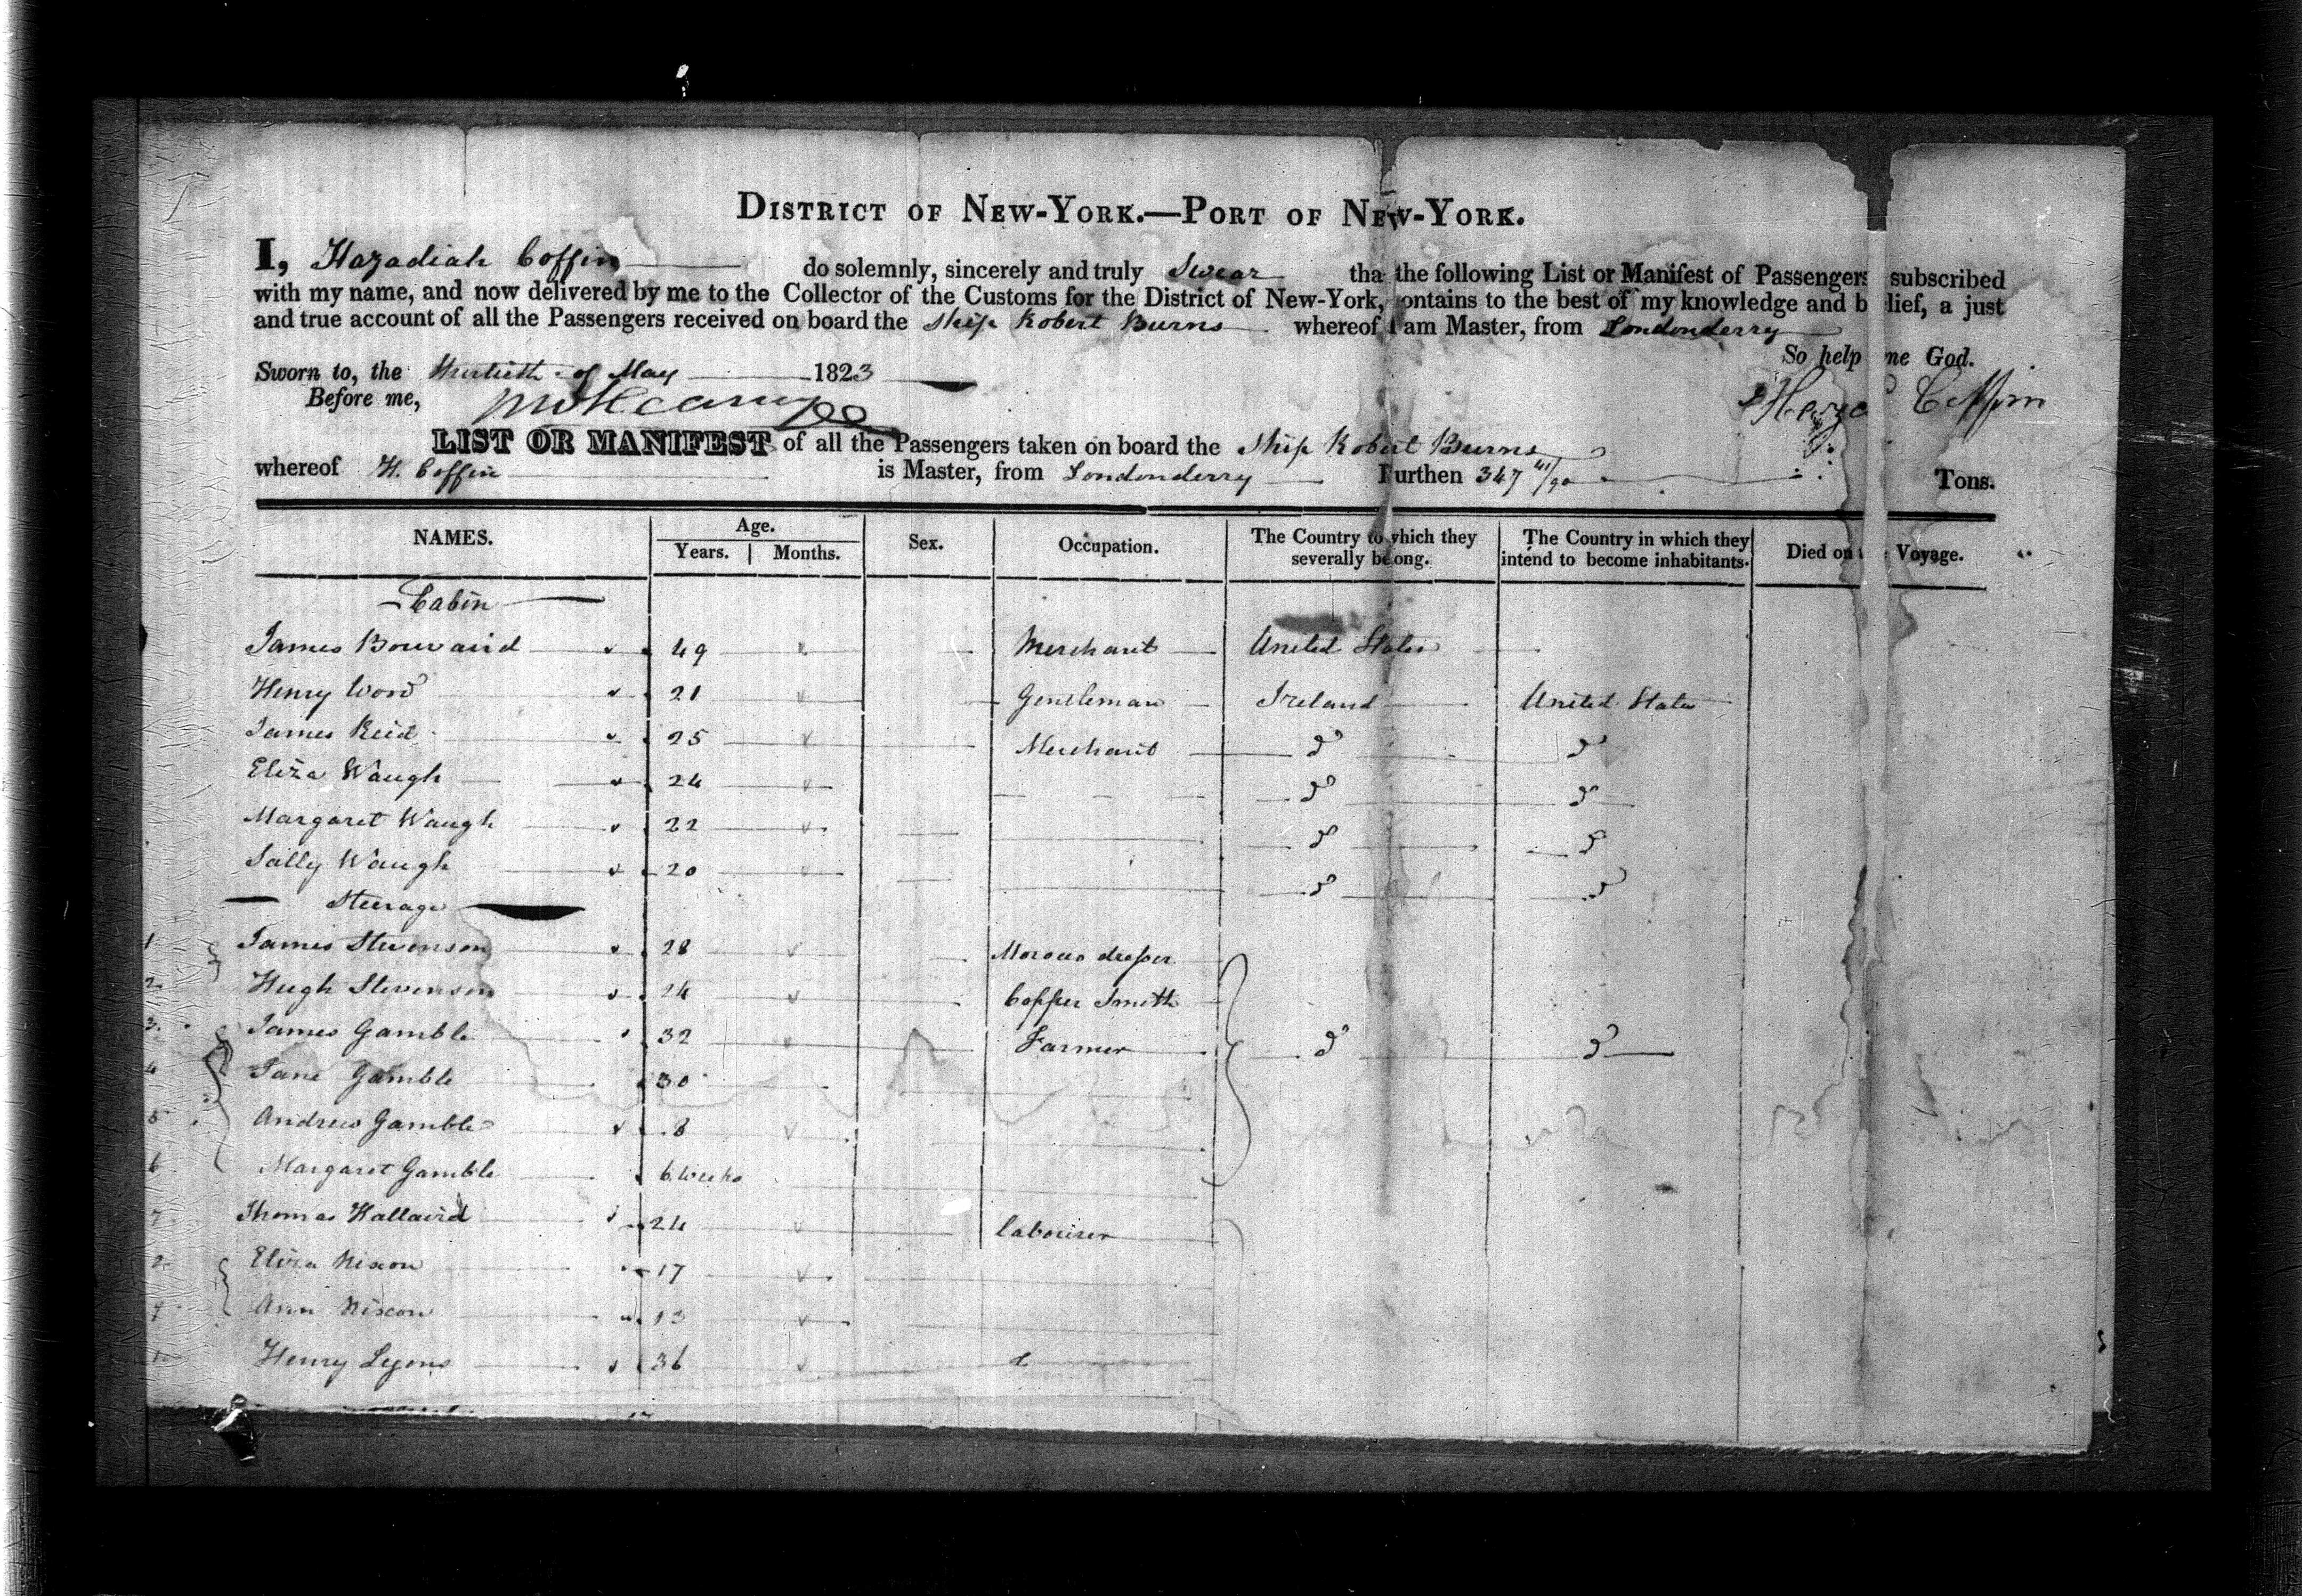 DISTRICT OF NEW-YORK.—PORT OF NEW-YORK.
I, Hazadiah Coffin do solemnly, sincerely and truly Swear tha the following List or Manifest of Passengers subscribed
with my name, and now delivered by me to the Collector of the Customs for the District of New-York, ontains to the best of my knowledge and b lief, a just
and true account of all the Passengers received on board the Ship Robert Burns whereof I am Master, from Londonderry
So help me God.
Sworn to, the thirtieth of May 1823
Before me, Coffin
LIST OR MANIFEST of all the Passengers taken on board the Ship Robert Burns
whereof H. Coffin is Master, from Londonderry Burthen 347 41/90 Tons.
NAMES. Age. Years. Months. Sex. Occupation. The Country to which they severally belong. The Country in which they intend to become inhabitants. Died on Voyage.
Cabin
James Bouvaird 49 Merchant United States
Henry Word 21 Gentleman Ireland United States
James Reid 25 Merchant do do
Eliza Waugh 24 do do
Margaret Waugh 22 do do
Sally Waugh 20 do do
Steerage
1 James Stevenson 28 Morocco dresser
2 Hugh Stevenson 24 Copper Smith
3. James Gamble 32 Farmer do do
4 Jane Gamble 30
5 Andrew Gamble 8
6 Margaret Gamble 6 Weeks
7 Thomas Hallaird 24 labourer
8 Eliza Nixon 17
9 Ann Nixon 13
10 Henry Lyons 36